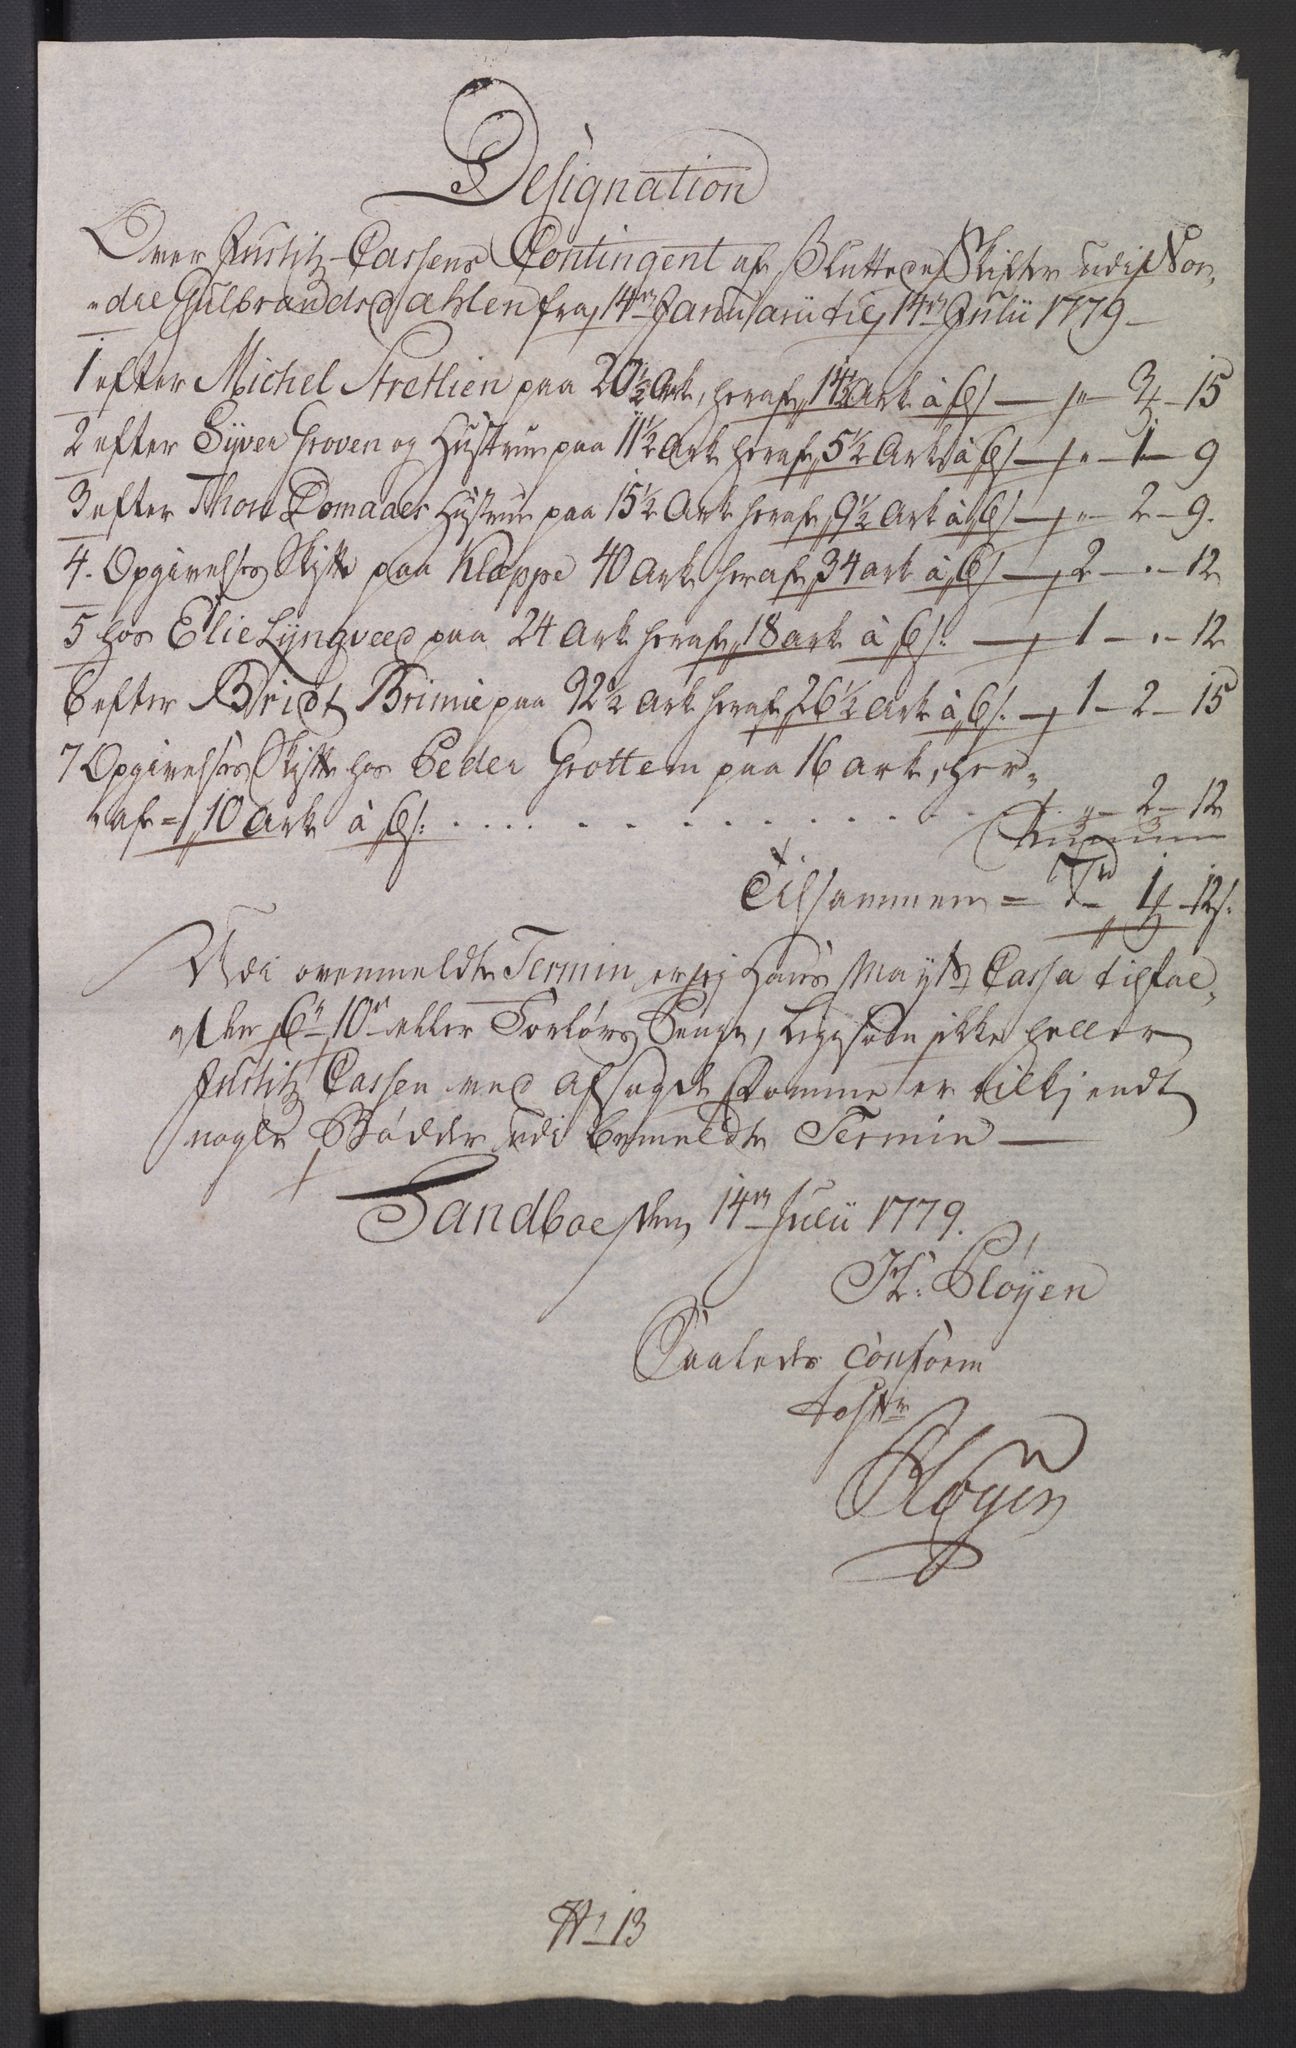 Designation
Over Justitz-Cassens Contingent af Sluttede Skifter udi Nor-
-dre Gulbrandsdahlen fra 14de Januarii til 14de Julii 1779
1 efter Michel Stretlien paa 20½ Ark, heraf 14½ Ark à 6 s — „ — 3 — 15
2 efter Syver Groven og Hustrue paa 11½ Ark heraf 5½ Ark à 6 s — „ — 1 — 9
3 efter Thor Domaaes Hustrue paa 15½ Ark heraf 9½ Ark à 6 s — „ — 2 — 9.
4. Opgivelses Skifte paa Kleppe 40 Ark heraf 34 ark à 6 s — 2 — „ — 12
5 hos Elie Lyngveed paa 24 Ark heraf 18 ark à 6 s. — 1 — „ — 12
6 efter Bridt Brimie paa 92½ Ark heraf 26½ Ark à 6 s. — 1 — 2 — 15
7 Opgivelses Skifte hos Peder Grottem paa 16 ark, her-
-af = 10 Ark à 6 s: . . . . . . . . „ — 2 — 12
Tilsammen = Rd 7 — 1 — 12 s.
Udi ovenmeldte Termin er ej Hans Mayts Cassa tilfal-
-den 6te 10de eller Forlovs Penge, Ligesom ikke heller
Justitz Cassen ved afsagde Domme er tilkjendt
nogle Bødder udi bemeldte Termin —
Sandboe den 14de Julii 1779.
H: Pløyen
Saaledes conform
testr
Pløyen
No 13